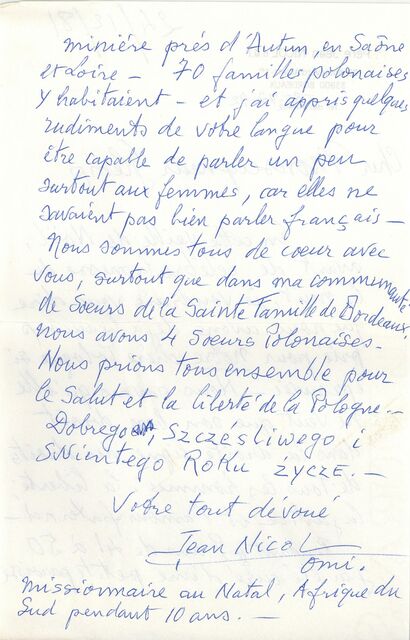 minière près d'Autun, en Saône
et Loire – 70 familles polonaises
y habitaient – et j'ai appris quelques
rudiments de votre langue pour
être capable de parler un peu
surtout aux femmes, car elles ne
savaient pas bien parler français –
Nous sommes tous de coeur avec
vous, surtout que dans ma communauté
de Soeurs de la Sainte Famille de Bordeaux,
nous avons 4 Soeurs Polonaises.
Nous prions tous ensemble pour
le Salut et la liberté de la Pologne. –
Dobrego, Szczęśliwego i
Swientego Roku życze. –
Votre tout dévoué
Jean Nicol
omi.
missionnaire au Natal, Afrique du
Sud pendant 10 ans. –